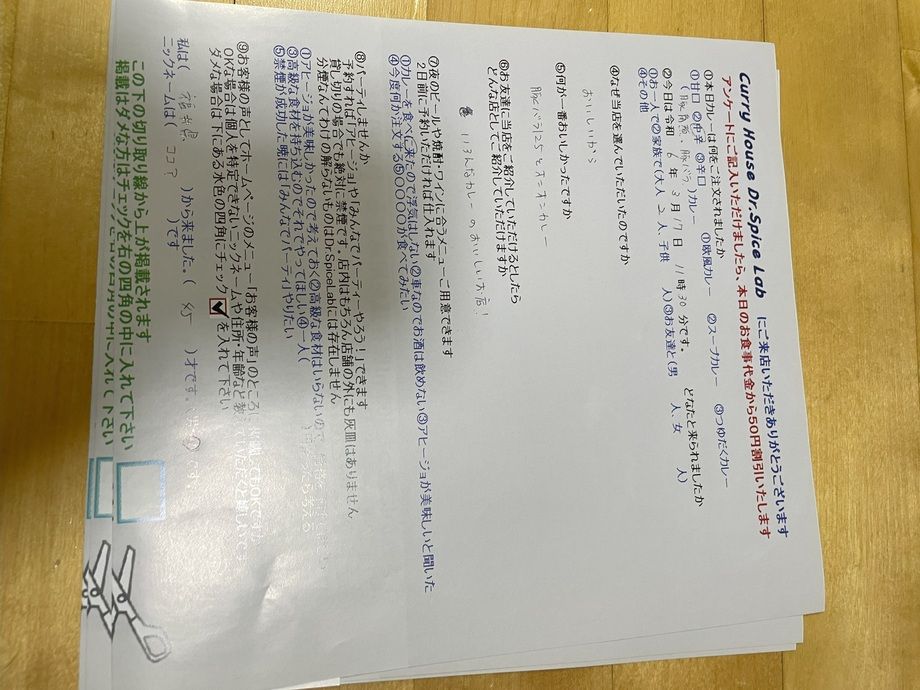 Curry House Dr.Spice Lab にご来店いただきありがとうございます
アンケートにご記入いただけましたら、本日のお食事代金から50円割引いたします
①本日カレーは何をご注文されましたか
①甘口 ②中辛 ③辛口 ①欧風カレー ②スープカレー ③つゆだくカレー
豚バラ )カレー
②今日は令和 6 年 3 月 17 日 11 時 30 分です どなたと来られましたか
①お一人で②ご家族で(大人 2 人、子供 人)③お友達と(男 人、女 人)
④その他
④なぜ当店を選んでいただいたのですか
おいしいから
⑤何が一番おいしかったですか
⑥お友達に当店をご紹介していただけるとしたら
どんな店としてご紹介していただけますか
いろんなカレーのおいしいお店!
⑦夜のビールや焼酎・ワインに合うメニューご用意できます
2日前に予約いただければ仕入れます
①カレーを食べに来たので浮気はしない②車なのでお酒は飲めない③アヒージョが美味しいと聞いた
④今度何か注文する⑤〇〇〇〇が食べてみたい
⑧パーティしませんか
予約すれば「アヒージョ」や「みんなでパーティーやろう!」できます
貸し切りの場合でも絶対に禁煙です、店内はもちろん店舗の外にも灰皿はありません
分煙なんてわけの解らないものはDrSpiceLabには存在しません
①アヒージョが美味しかったので考えておく②高級な食材はいらないので
③高級な食材を持ち込むのでそれでやってほしい④一人で
⑤禁煙が成功した暁には「みんなでパーティ」やりたい
⑨お客様の声としてホームページのメニュー「お客様の声」のところ
OKな場合は個人を特定できないニックネームや住所・年齢など
ダメな場合は下にある水色の四角にチェック を入れて下さい
私は( )から来ました。( )才です。
ニックネームは( ココア )です
この下の切り取り線から上が掲載されます
掲載はダメな方はチェックを右の四角の中に入れて下さい